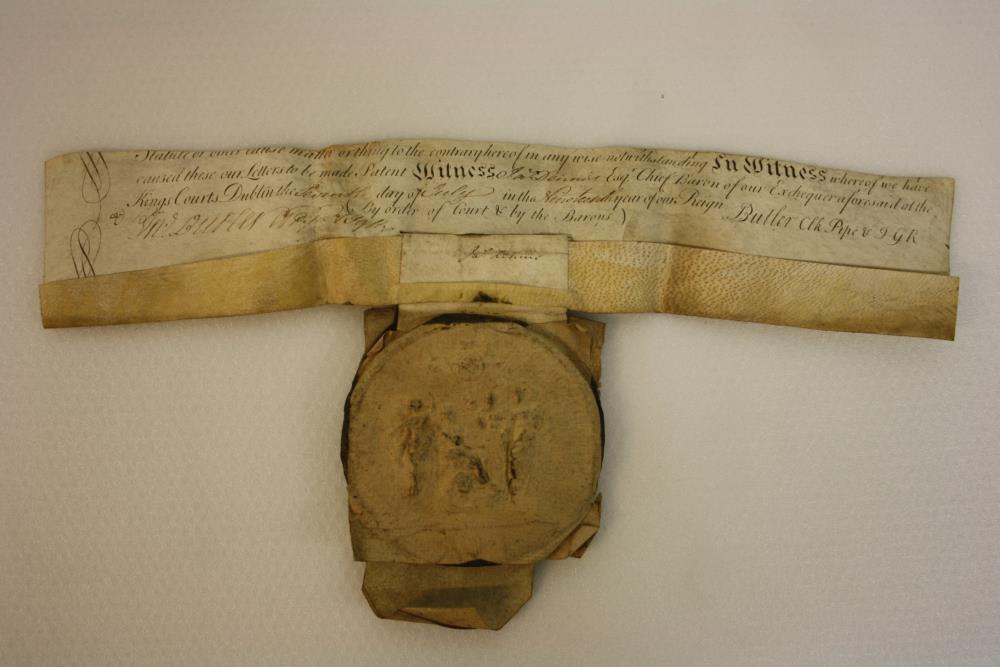 Statute or other cause matter or thing to the contrary hereof in any wise notwithstanding In Witness whereof we have
caused these our Letters to be made Patent Witness Jas Dennis Esqr Chief Baron of our Exchequer aforesaid at the
Kings Courts Dublin the day of July in the year of our Reign
& By order of Court & by the Barons) Butler Clk Pipe &
Butler